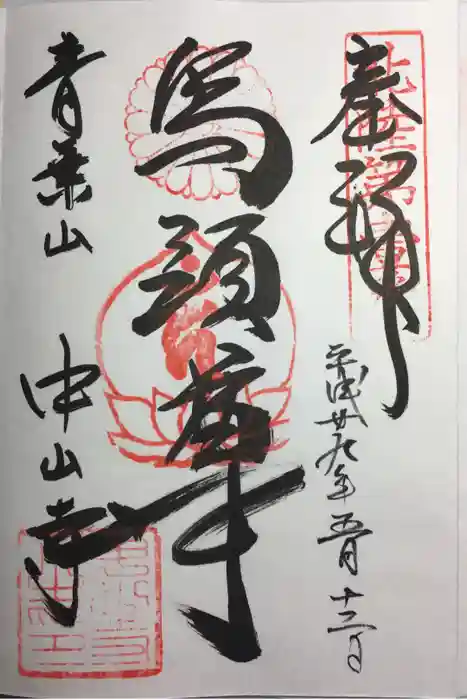 奉拝
平成廿九年五月十三日
馬頭尊
青葉山 中山寺